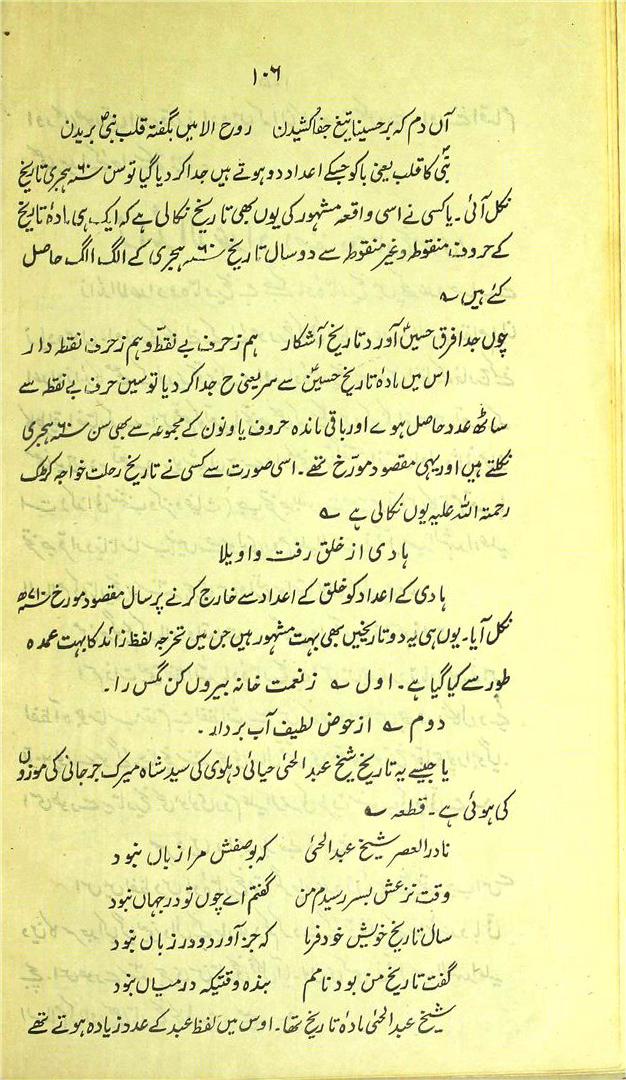 ۱۰۶
آں دم کہ بر حسینا تیغ جفا کشیدن روح الامیں بگفتہ قلب نبیؐ بریدن
نبیؐ کا قلب یعنی با کو جسکے اعداد دو ہوتے ہیں جدا کر دیا گیا تو سن ۶۰ ہجری تاریخ
نکل آئی۔ یا کسی نے اسی واقعہ مشہور کی یوں بھی تاریخ نکالی ہے کہ ایک ہی مادۂ تاریخ
کے حروف منقوط و غیر منقوط سے دو سال تاریخ ۶۰ ہجری کے الگ الگ حاصل
کئے ہیں ؎
چوں جدا فرق حسینؓ آورد تاریخ آشکار ہم ز حرف بے نقط و ہم ز حرف نقط دار
اس میں مادۂ تاریخ حسینؓ سے سر یعنی ح جدا کر دیا تو سین حرف بے نقط سے
ساٹھ عدد حاصل ہوے اور باقی ماندہ حروف یا و نون کے مجموعہ سے بھی سن ۶۰ ہجری
نکلتے ہیں اور یہی مقصود مورّخ تھے۔ اسی صورت سے کسی نے تاریخ رحلت خواجہ کڑک
رحمتہ اللہ علیہ یوں نکالی ہے ؎
ہادی از خلق رفت واویلا
ہادی کے اعداد کو خلق کے اعداد سے خارج کرنے پر سال مقصود مورخ ۷۱۰ھ
نکل آیا۔ یوں ہی یہ دو تاریخیں بھی بہت مشہور ہیں جن میں تخرجہ لفظ زائد کا بہت عمدہ
طور سے کیا گیا ہے۔ اول ؎ ز نعمت خانہ بیروں کن مگس را۔
دوم ؎ از حوض لطیف آب بردار۔
یا جیسے یہ تاریخ شیخ عبد الحئی حیاتی دہلوی کی سید شاہ میرک جرجانی کی موزوں
کی ہوئی ہے۔ قطعہ ؎
نادر العصر شیخ عبد الحئی کہ بوصفش مرا زباں نبود
وقت نزعش بسر رسیدم من گفتم اے چوں تو در جہاں نبود
سال تاریخ خویش خود فرما کہ جز آورد و در زباں نبود
گفت تاریخ من بود نامم بندہ وقتیکہ درمیاں نبود
شیخ عبد الحئی مادۂ تاریخ تھا۔ اوس میں لفظ عبد کے عدد زیادہ ہوتے تھے